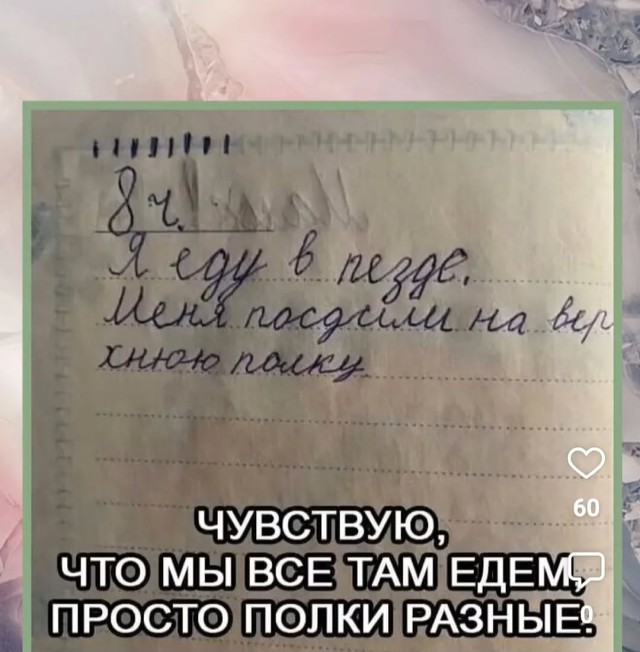 8 ч.
Я еду в пезде.
Меня посдили на вер
хнюю полку
60
ЧУВСТВУЮ,
ЧТО МЫ ВСЕ ТАМ ЕДЕМ,
ПРОСТО ПОЛКИ РАЗНЫЕ.
0